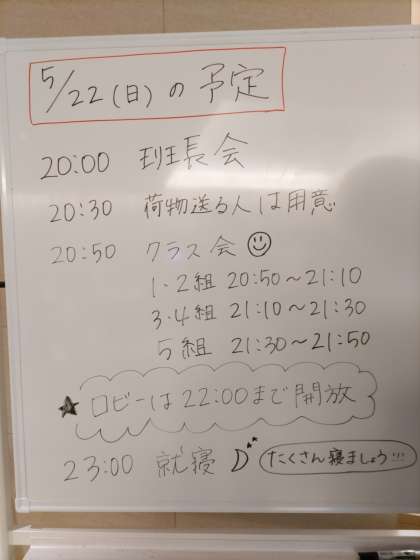 5/22(日)の予定
20:00 班長会
20:30 荷物送る人は用意
20:50 クラス会
1・2組 20:50〜21:10
3・4組 21:10〜21:30
5組 21:30〜21:50
★ ロビーは22:00まで開放
23:00 就寝 たくさん寝ましょう!!!